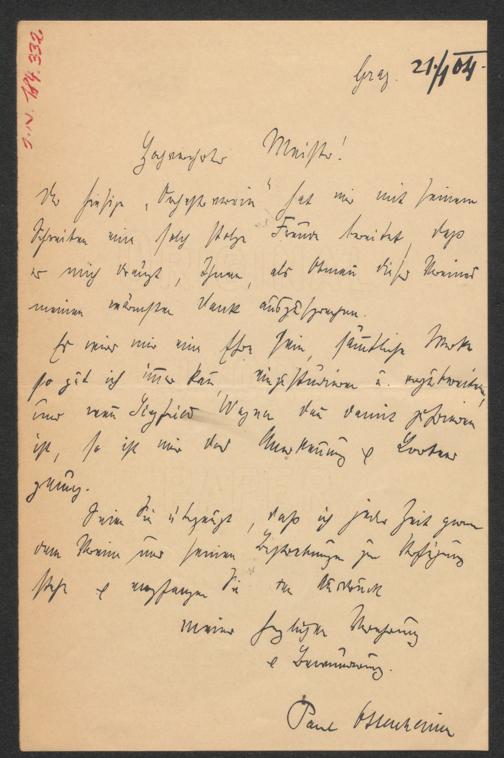 I.N. 184.332
Graz. 21./1 04.
Hochverehrter Meister!
Der hiesige „Orchesterverein“ hat mir mit seinem
Schreiben eine solch stolze Freude bereitet, daß
es mich drängt, Ihnen, als Obmann dieses Vereines
meinen wärmsten Dank auszusprechen.
Es wird mir eine Ehre sein, sämtliche Werke
so gut ich immer kann, einzustudieren u.
und wenn Siegfried Wagner damit zufrieden
ist, so ist mir das Anerkennung &
Seien Sie überzeugt, daß ich jede Zeit gerne
dem Verein und seinen Bestrebungen zur Verfügung
stehe & empfangen Sie den Ausdruck
meiner herzlichen Verehrung
& Bewunderung.
Paul Ottenheimer